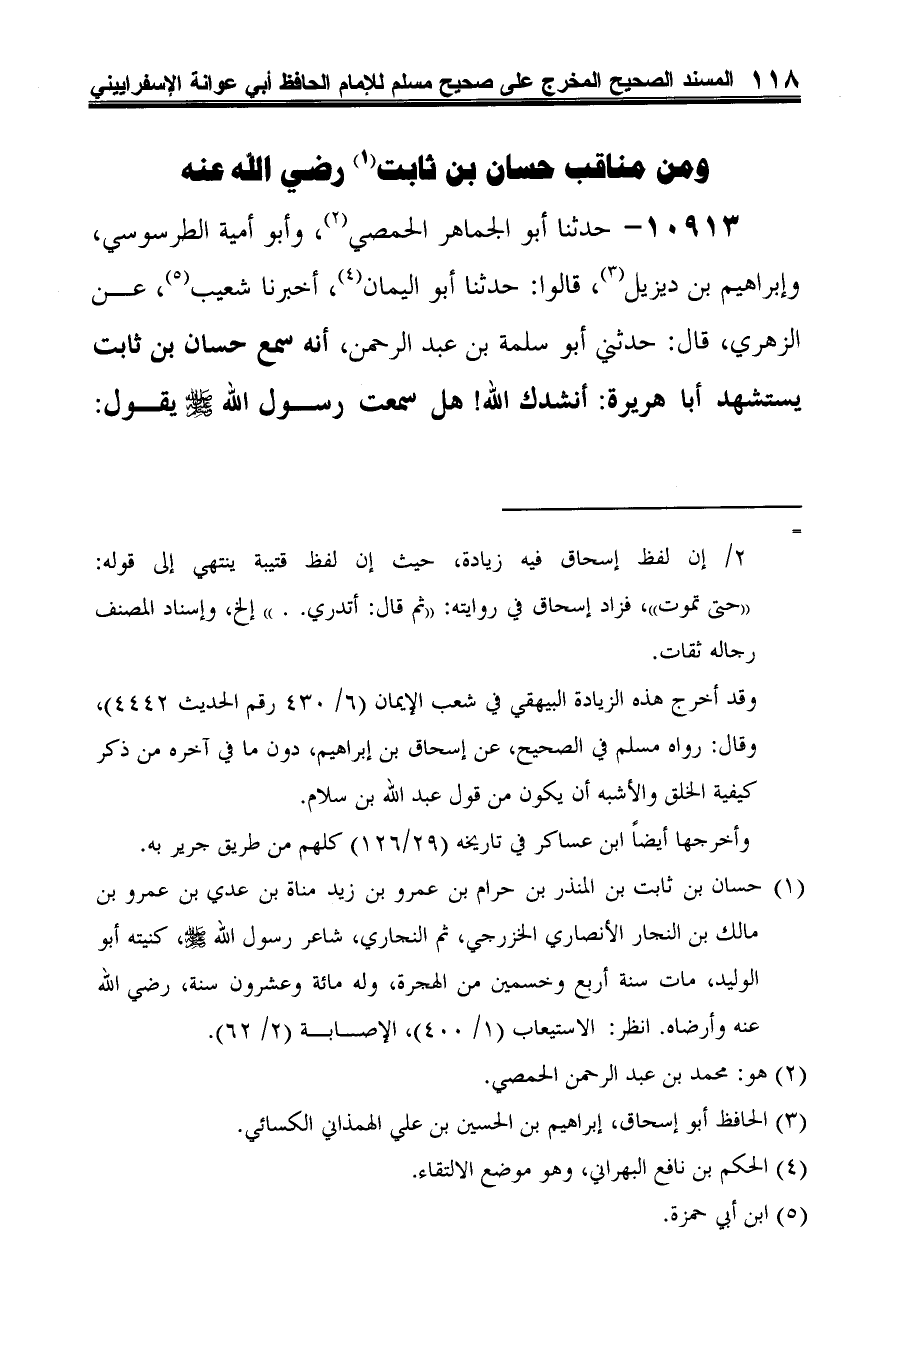 ١١٨ المسند الصحيح المخرج على صحيح مسلم للإمام الحافظ أبي عوانة الإسفراييني
ومن مناقب حسان بن ثابت(١) رضي الله عنه
١٠٩١٣- حدثنا أبو الجماهر الحمصي(٢)، وأبو أمية الطرسوسي،
وإبراهيم بن ديزيل(٣)، قالوا: حدثنا أبو اليمان(٤)، أخبرنا شعيب(٥)، عن
الزهري، قال: حدثني أبو سلمة بن عبد الرحمن، أنه سمع حسان بن ثابت
يستشهد أبا هريرة: أنشدك الله! هل سمعت رسول الله ﷺ يقول:
=
٢/ إن لفظ إسحاق فيه زيادة، حيث إن لفظ قتيبة ينتهي إلى قوله:
«حتى تموت»، فزاد إسحاق في روايته: «ثم قال: أتدري. . » إلخ، وإسناد المصنف
رجاله ثقات.
وقد أخرج هذه الزيادة البيهقي في شعب الإيمان (٦/ ٤٣٠ رقم الحديث ٤٤٤٢)،
وقال: رواه مسلم في الصحيح، عن إسحاق بن إبراهيم، دون ما في آخره من ذكر
كيفية الخلق والأشبه أن يكون من قول عبد الله بن سلام.
وأخرجها أيضاً ابن عساكر في تاريخه (١٢٦/٢٩) كلهم من طريق جرير به.
(١) حسان بن ثابت بن المنذر بن حرام بن عمرو بن زيد مناة بن عدي بن عمرو بن
مالك بن النجار الأنصاري الخزرجي، ثم النجاري، شاعر رسول الله ﷺ، كنيته أبو
الوليد، مات سنة أربع وخمسين من الهجرة، وله مائة وعشرون سنة، رضي الله
عنه وأرضاه. انظر: الاستيعاب (١/ ٤٠٠)، الإصابة (٢/ ٦٢).
(٢) هو: محمد بن عبد الرحمن الحمصي.
(٣) الحافظ أبو إسحاق، إبراهيم بن الحسين بن علي الهمذاني الكسائي.
(٤) الحكم بن نافع البهراني، وهو موضع الالتقاء.
(٥) ابن أبي حمزة.